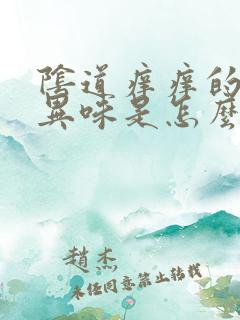 陰道痒痒的
異味是怎麼
趙杰
未经同意禁止转载